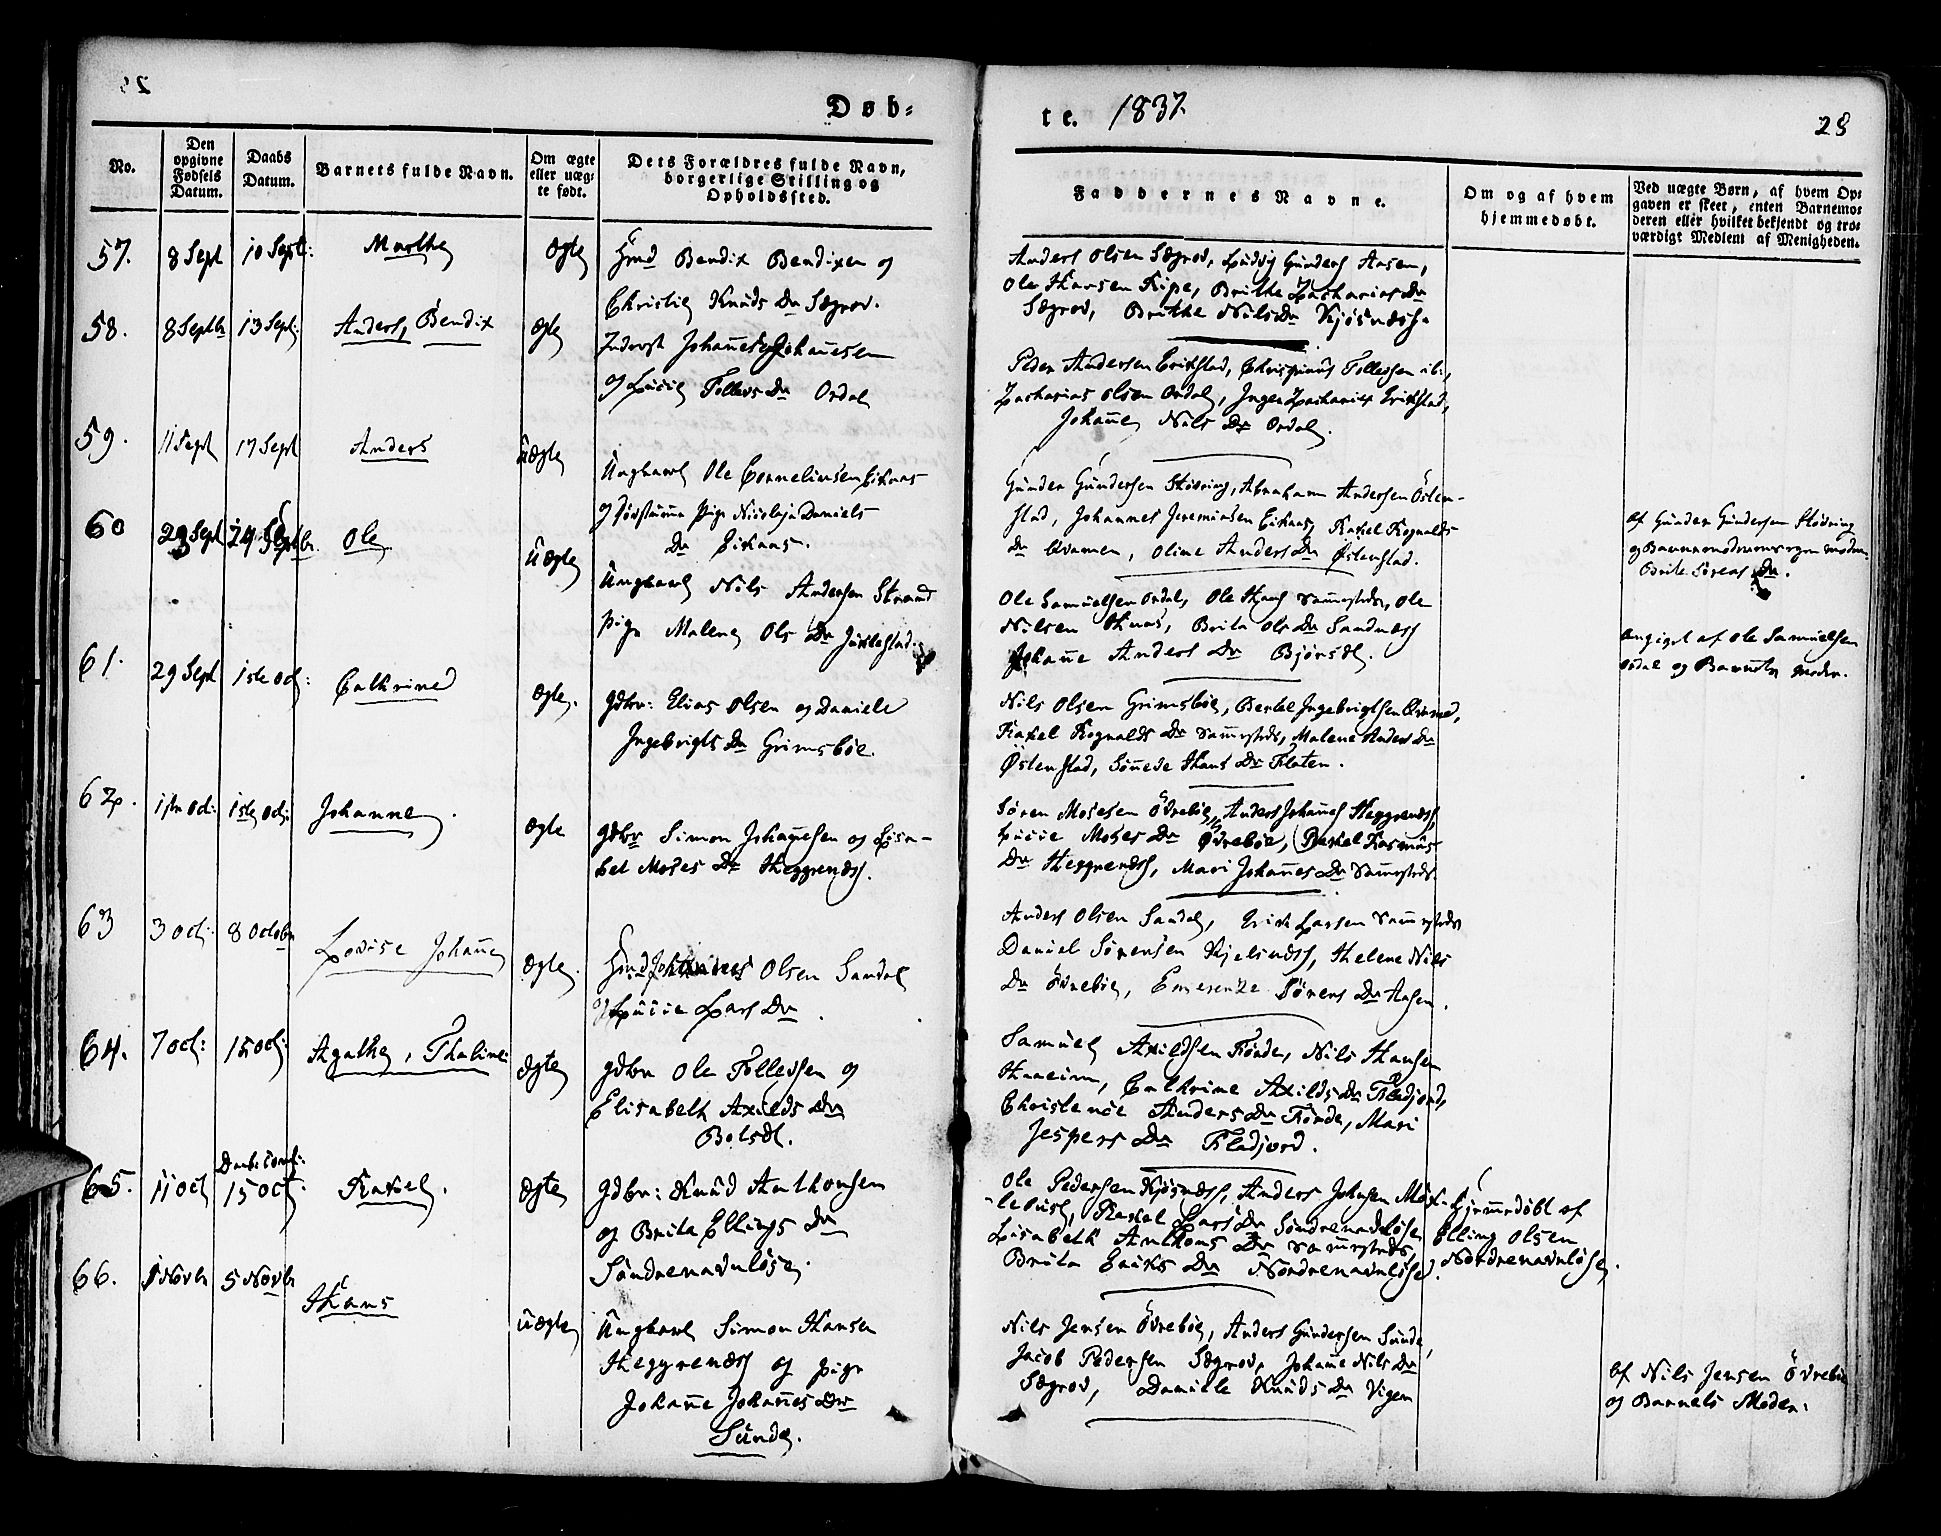 Døb-
te. 1837.
28
No.
Den opgivne Fødsels Datum.
Daabs Datum.
Barnets fulde Navn.
Om ægte eller uæg-te født.
Dets Forældres fulde Navn, borgerlige Stilling og Opholdssted.
Faddernes Navne.
Om og af hvem hjemmedøbt.
Ved uægte Børn, af hvem Op-
gaven er skeet, enten Barnemo-
deren eller hvilket bekjendt og tro-
værdigt Medlem af Menigheden.
57. 8 Sept 10 Sept: Marthe Ægte Hmd Bendix Bendixen og
Christie Knuds Dr Sægrov.
Anders Olsen Sægrov, Ludvig Gunders Aasen,
Ole Hansen Kipe, Brithe Zacharias Dr
Sægrov, Brithe Nils Dr Kjøsnæss.
58. 8 Septbr 13 Sept: Anders, Bendix Ægte Inderst Johannes Johanesen
og Lucie Tollevs Dr Ordal
Peder Andersen Erikstad, Tollefsen ibi,
Zacharias Olsen Ordal, Inger Zacharias Erikstad,
Johanne Nils Dr Ordal.
59. 11 Sept 17 Sept Anders Uægte Ungkarl Ole Corneliusen Eikaas
og pige Nicoleja Daniels
Dr Eikaas.
Gunder Gundersen Støvring, Abraham Andersen Østen-
stad, Johannes Jeremiasen Eikaas, Rakel Rognalds
Dr Qvamen, Oline Anders Dr Østenstad.
af Gunder Gundersen Støvring
og Barnemoderens egen moder
Brite Sørens Dr.
60 29 Sept 24 Septbr Ole Uægte Ungkarl Nils Andersen Strand
pige Malene Ols Dr
Ole Samuelsen Ordal, Ole Hans Sammesteds, Ole
Nilsen Aaaas, Brita Ols Dr Sandnæss
Johanne Anders Dr
angivet af Ole Samuelsen
Ordal og Barnets moder.
61. 29 Sept 1ste Oct: Cathrine Ægte. Gdbr: Elias Olsen og Daniele
Ingebrigts Dr Grimsbøe.
Nils Olsen Grimsbøe, Bertel Ingebrigtsen
Rakel Rognalds Dr Sammesteds, Malene Anders Dr
Østenstad, Sønneve Hans Dr Flaten.
62. 1ste Oct: 1ste Oct: Johanne. Ægte Gdbr Simon Johannesen og Lisa-
bet Moses Dr Heggrenæss.
Søren Mosesen Øvrebøe, Anders Johannes Heggrenæss,
Lucie Moses Dr Øvrebøe, Rakel Rasmus
Dr Heggrenæss, Mari Johannes Dr Sammesteds.
63 3 Oct: 8 Octobr Lovise Johanne Ægte. Hmd Johannes Olsen Sandal
og Lucie Lars Dr.
Anders Olsen Sandal, Erik Larsen Sammesteds
Daniel Sørensen Kjelsnæss, Helene Nils
Dr Øvrebøe, Emerenze Sørens Dr Aasen.
64. 7 Oct: 15 Oct: Agathe, Thaline Ægte Gdbr Ole Tollefsen og
Elisabeth Axilds Dr
Botsdl.
Samuel Axildsen Førde, Nils Hansen
Cathrine Axilds Dr Fladjord,
Christence Anders Dr Førde, Mari
Jespers Dr Fladjord.
65. 11 Oct 15 Oct. Rakel. Ægte Gdbr: Knud Anthonsen
og Brita Ellings Dr
Søndrenavnløse.
Ole Pedersen Kjøsnæss, Anders Johnsen Mox-
lebust, Rakel Lars Dr Søndrenavnløse
Lisabeth Anthons Dr Sammesteds,
Brita Eriks Dr Nordrenavnløse.
Hjemmedøbt af
Elling Olsen
Nordrenavnløse.
66. 1 Novbr 5 Novbr Hans Uægte Ungkarl Simon Hansen
Heggrenæss og pige
Johanne Johannes Dr
Sunde.
Nils Jensen Øvrebøe, Anders Gundersen Sunde,
Jacob Pedersen Sægrov, Johanne Nils Dr
Sægrov, Danielle Knuds Dr Vigen
af Nils Jensen Øvrebøe
og Barnets Moder.